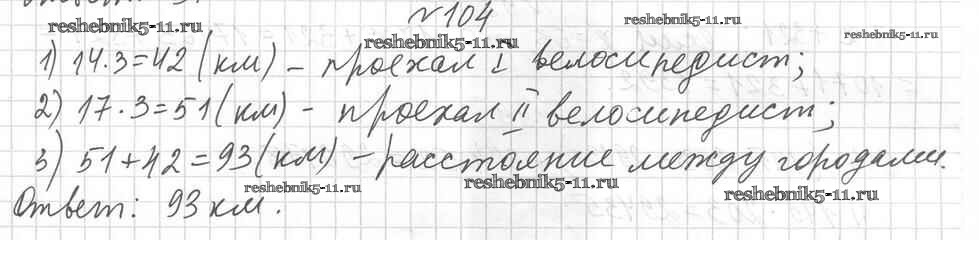 №104
1) 14·3=42 (км) – проехал I велосипедист;
2) 17·3=51 (км) – проехал II велосипедист;
3) 51+42=93 (км) – расстояние между городами.
Ответ: 93 км.
reshebnik5-11.ru
reshebnik5-11.ru
reshebnik5-11.ru
reshebnik5-11.ru
reshebnik5-11.ru
reshebnik5-11.ru
reshebnik5-11.ru